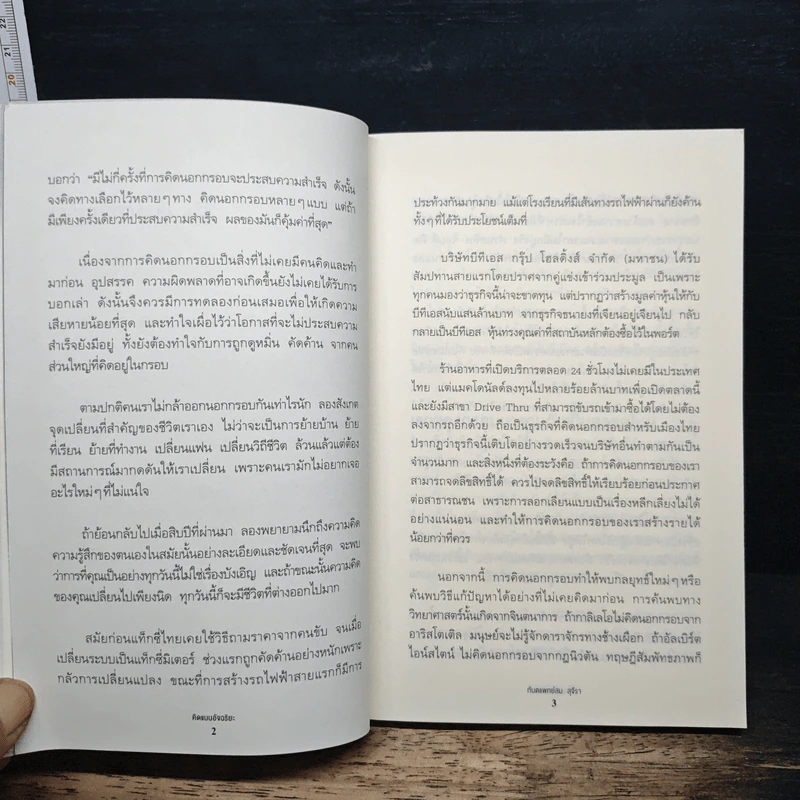 22
21
20
บอกว่า “มีไม่กี่ครั้งที่การคิดนอกกรอบจะประสบความสำเร็จ ดังนั้น
จงคิดทางเลือกไว้หลายๆทาง คิดนอกกรอบหลายๆแบบ แต่ถ้า
มีเพียงครั้งเดียวที่ประสบความสำเร็จ ผลของมันก็คุ้มค่าที่สุด”
เนื่องจากการคิดนอกกรอบเป็นสิ่งที่ไม่เคยมีคนคิดและทำ
มาก่อน อุปสรรค ความผิดพลาดที่อาจเกิดขึ้นยังไม่เคยได้รับการ
บอกเล่า ดังนั้นจึงควรมีการทดลองก่อนเสมอเพื่อให้เกิดความ
เสียหายน้อยที่สุด และทำใจเผื่อไว้ว่าโอกาสที่จะไม่ประสบความ
สำเร็จยังมีอยู่ ทั้งยังต้องทำใจกับการถูกดูหมิ่น คัดค้าน จากคน
ส่วนใหญ่ที่คิดอยู่ในกรอบ
ตามปกติคนเราไม่กล้าออกนอกกรอบกันเท่าไรนัก ลองสังเกต
จุดเปลี่ยนที่สำคัญของชีวิตเราเอง ไม่ว่าจะเป็นการย้ายบ้าน ย้าย
ที่เรียน ย้ายที่ทำงาน เปลี่ยนแฟน เปลี่ยนวิถีชีวิต ล้วนแล้วแต่ต้อง
มีสถานการณ์มากดดันให้เราเปลี่ยน เพราะคนเรามักไม่อยากเจอ
อะไรใหม่ๆที่ไม่แน่ใจ
ถ้าย้อนกลับไปเมื่อสิบปีที่ผ่านมา ลองพยายามนึกถึงความคิด
ความรู้สึกของตนเองในสมัยนั้นอย่างละเอียดและชัดเจนที่สุด จะพบ
ว่าการที่คุณเป็นอย่างทุกวันนี้ไม่ใช่เรื่องบังเอิญ และถ้าขณะนั้นความคิด
ของคุณเปลี่ยนไปเพียงนิด ทุกวันนี้ก็จะมีชีวิตที่ต่างออกไปมาก
สมัยก่อนแท็กซี่ไทยเคยใช้วิธีถามราคาจากคนขับ จนเมื่อ
เปลี่ยนระบบเป็นแท็กซี่มิเตอร์ ช่วงแรกถูกคัดค้านอย่างหนักเพราะ
กลัวการเปลี่ยนแปลง ขณะที่การสร้างรถไฟฟ้าสายแรกก็มีการ
คิดแบบอัจฉริยะ
2
ประท้วงกันมากมาย แม้แต่โรงเรียนที่มีเส้นทางรถไฟฟ้าผ่านก็ยังค้าน
ทั้งๆที่ได้รับประโยชน์เต็มที่
บริษัทบีทีเอส กรุ๊ป โฮลดิ้งส์ จำกัด (มหาชน) ได้รับ
สัมปทานสายแรกโดยปราศจากคู่แข่งเข้าร่วมประมูล เป็นเพราะ
ทุกคนมองว่าธุรกิจนี้น่าจะขาดทุน แต่ปรากฏว่าสร้างมูลค่าหุ้นให้กับ
บีทีเอสนับแสนล้านบาท จากธุรกิจขนายงที่เจียนอยู่เจียนไป กลับ
กลายเป็นบีทีเอส หุ้นทรงคุณค่าที่สถาบันหลักต้องซื้อไว้ในพอร์ต
ร้านอาหารที่เปิดบริการตลอด 24 ชั่วโมงไม่เคยมีในประเทศ
ไทย แต่แมคโดนัลด์ลงทุนไปหลายร้อยล้านบาทเพื่อเปิดตลาดนี้
และยังมีสาขา Drive Thru ที่สามารถขับรถเข้ามาซื้อได้โดยไม่ต้อง
ลงจากรถอีกด้วย ถือเป็นธุรกิจที่คิดนอกกรอบสำหรับเมืองไทย
ปรากฏว่าธุรกิจนี้เติบโตอย่างรวดเร็วจนบริษัทอื่นทำตามกันเป็น
จำนวนมาก และสิ่งหนึ่งที่ต้องระวังคือ ถ้าการคิดนอกกรอบของเรา
สามารถจดลิขสิทธิ์ได้ ควรไปจดลิขสิทธิ์ให้เรียบร้อยก่อนประกาศ
ต่อสาธารณชน เพราะการลอกเลียนแบบเป็นเรื่องหลีกเลี่ยงไม่ได้
อย่างแน่นอน และทำให้การคิดนอกกรอบของเราสร้างรายได้
น้อยกว่าที่ควร
นอกจากนี้ การคิดนอกกรอบทำให้พบกลยุทธ์ใหม่ๆหรือ
ค้นพบวิธีแก้ปัญหาได้อย่างที่ไม่เคยคิดมาก่อน การค้นพบทาง
วิทยาศาสตร์นั้นเกิดจากจินตนาการ ถ้ากาลิเลโอไม่คิดนอกกรอบจาก
อาริสโตเติล มนุษย์จะไม่รู้จักดาราจักรทางช้างเผือก ถ้าอัลเบิร์ต
ไอน์สไตน์ ไม่คิดนอกกรอบจากกฎนิวตัน ทฤษฎีสัมพัทธภาพก็
ทันตแพทย์สม สุจีรา
3